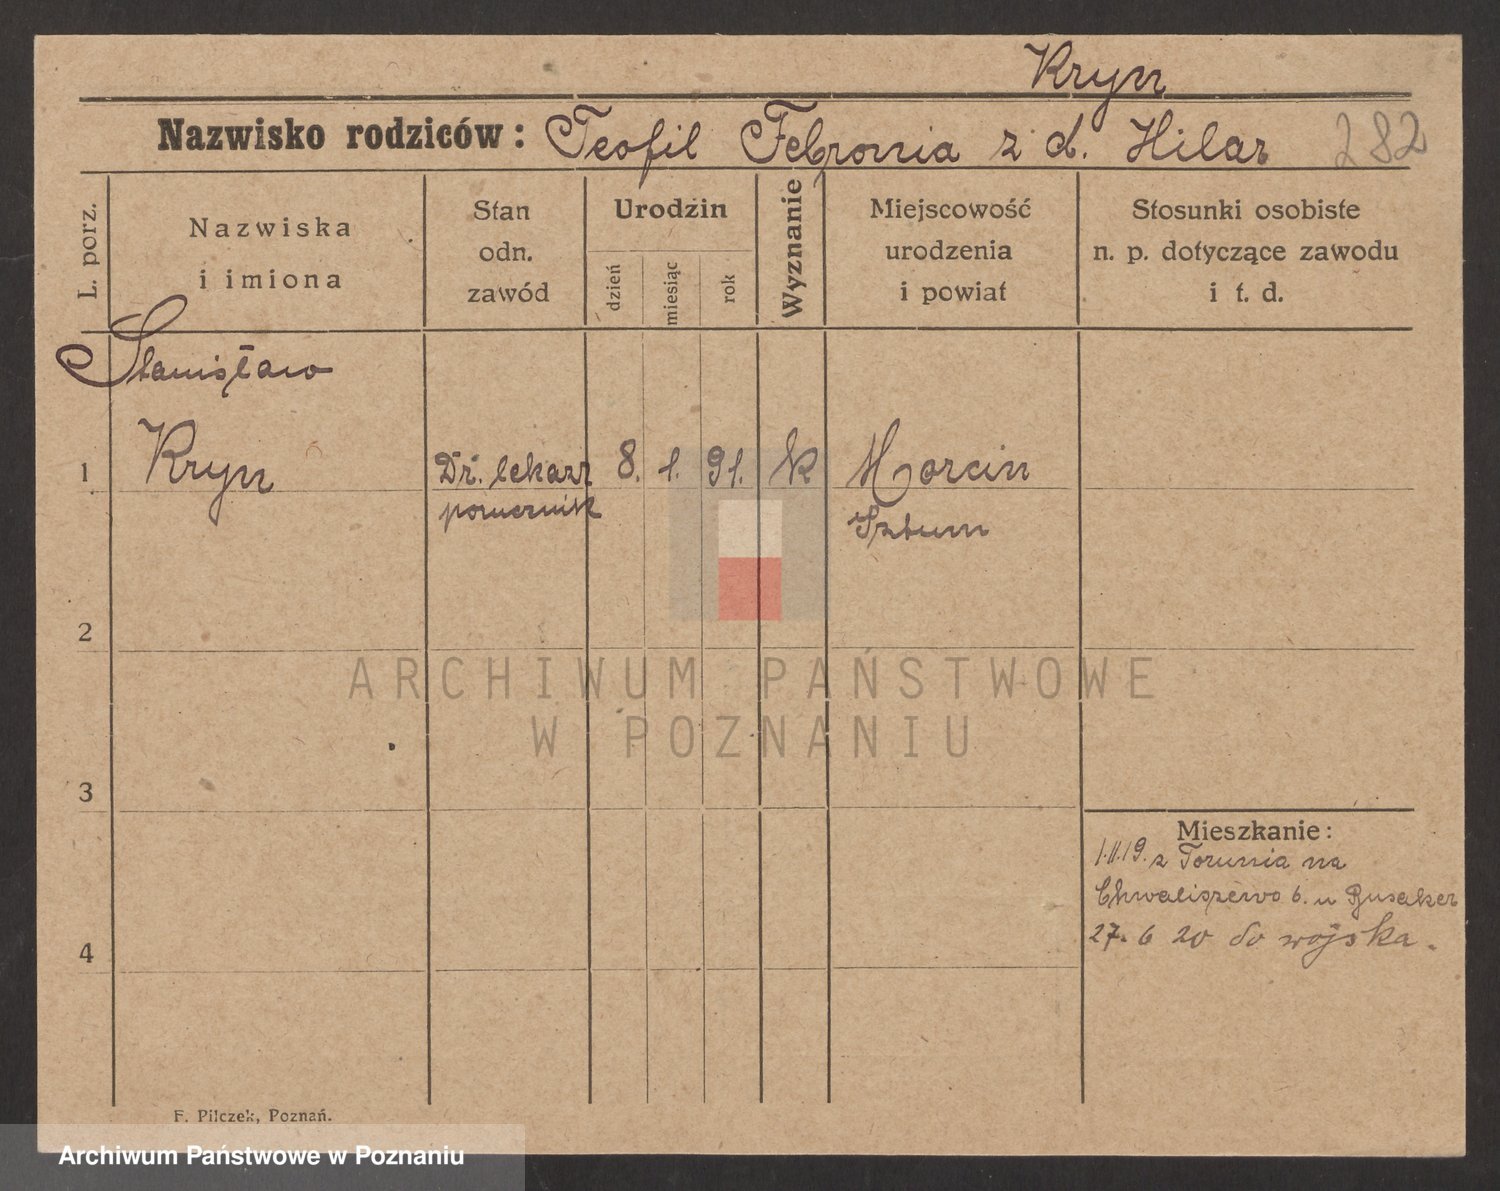 Kryn
Nazwisko rodziców: Teofil Febronia z d. Hilar 282
L. porz.
Nazwiska
i imiona
Stan
odn.
zawód
Urodzin
dzień
miesiąc
rok
Wyznanie
Miejscowość
urodzenia
i powiat
Stosunki osobiste
n. p. dotyczące zawodu
i t. d.
Stanisław
1 Kryn Dr. lekarz 8. 1. 91. k
porucznik Sztum
2
ARCHIWUM PAŃSTWOWE
W POZNANIU
3
Mieszkanie:
1.II.19. z Torunia na
Chwaliszewo 6. u
4 27. 6 20 do wojska.
F. Pilczek, Poznań.
Archiwum Państwowe w Poznaniu